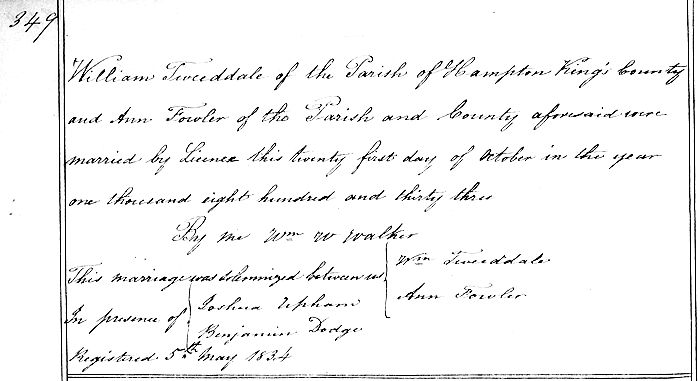 349
William Tweeddale of the Parish of Hampton King's County
and Ann Fowler of the Parish and County aforesaid were
married by Licence this twenty first day of October in the year
one thousand eight hundred and thirty three
By me Wm W Walker
This marriage was solemnized between us, Wm Tweeddale
Ann Fowler
In presence of Joshua Upham
Benjamin Dodge
Registered. 5th May 1834